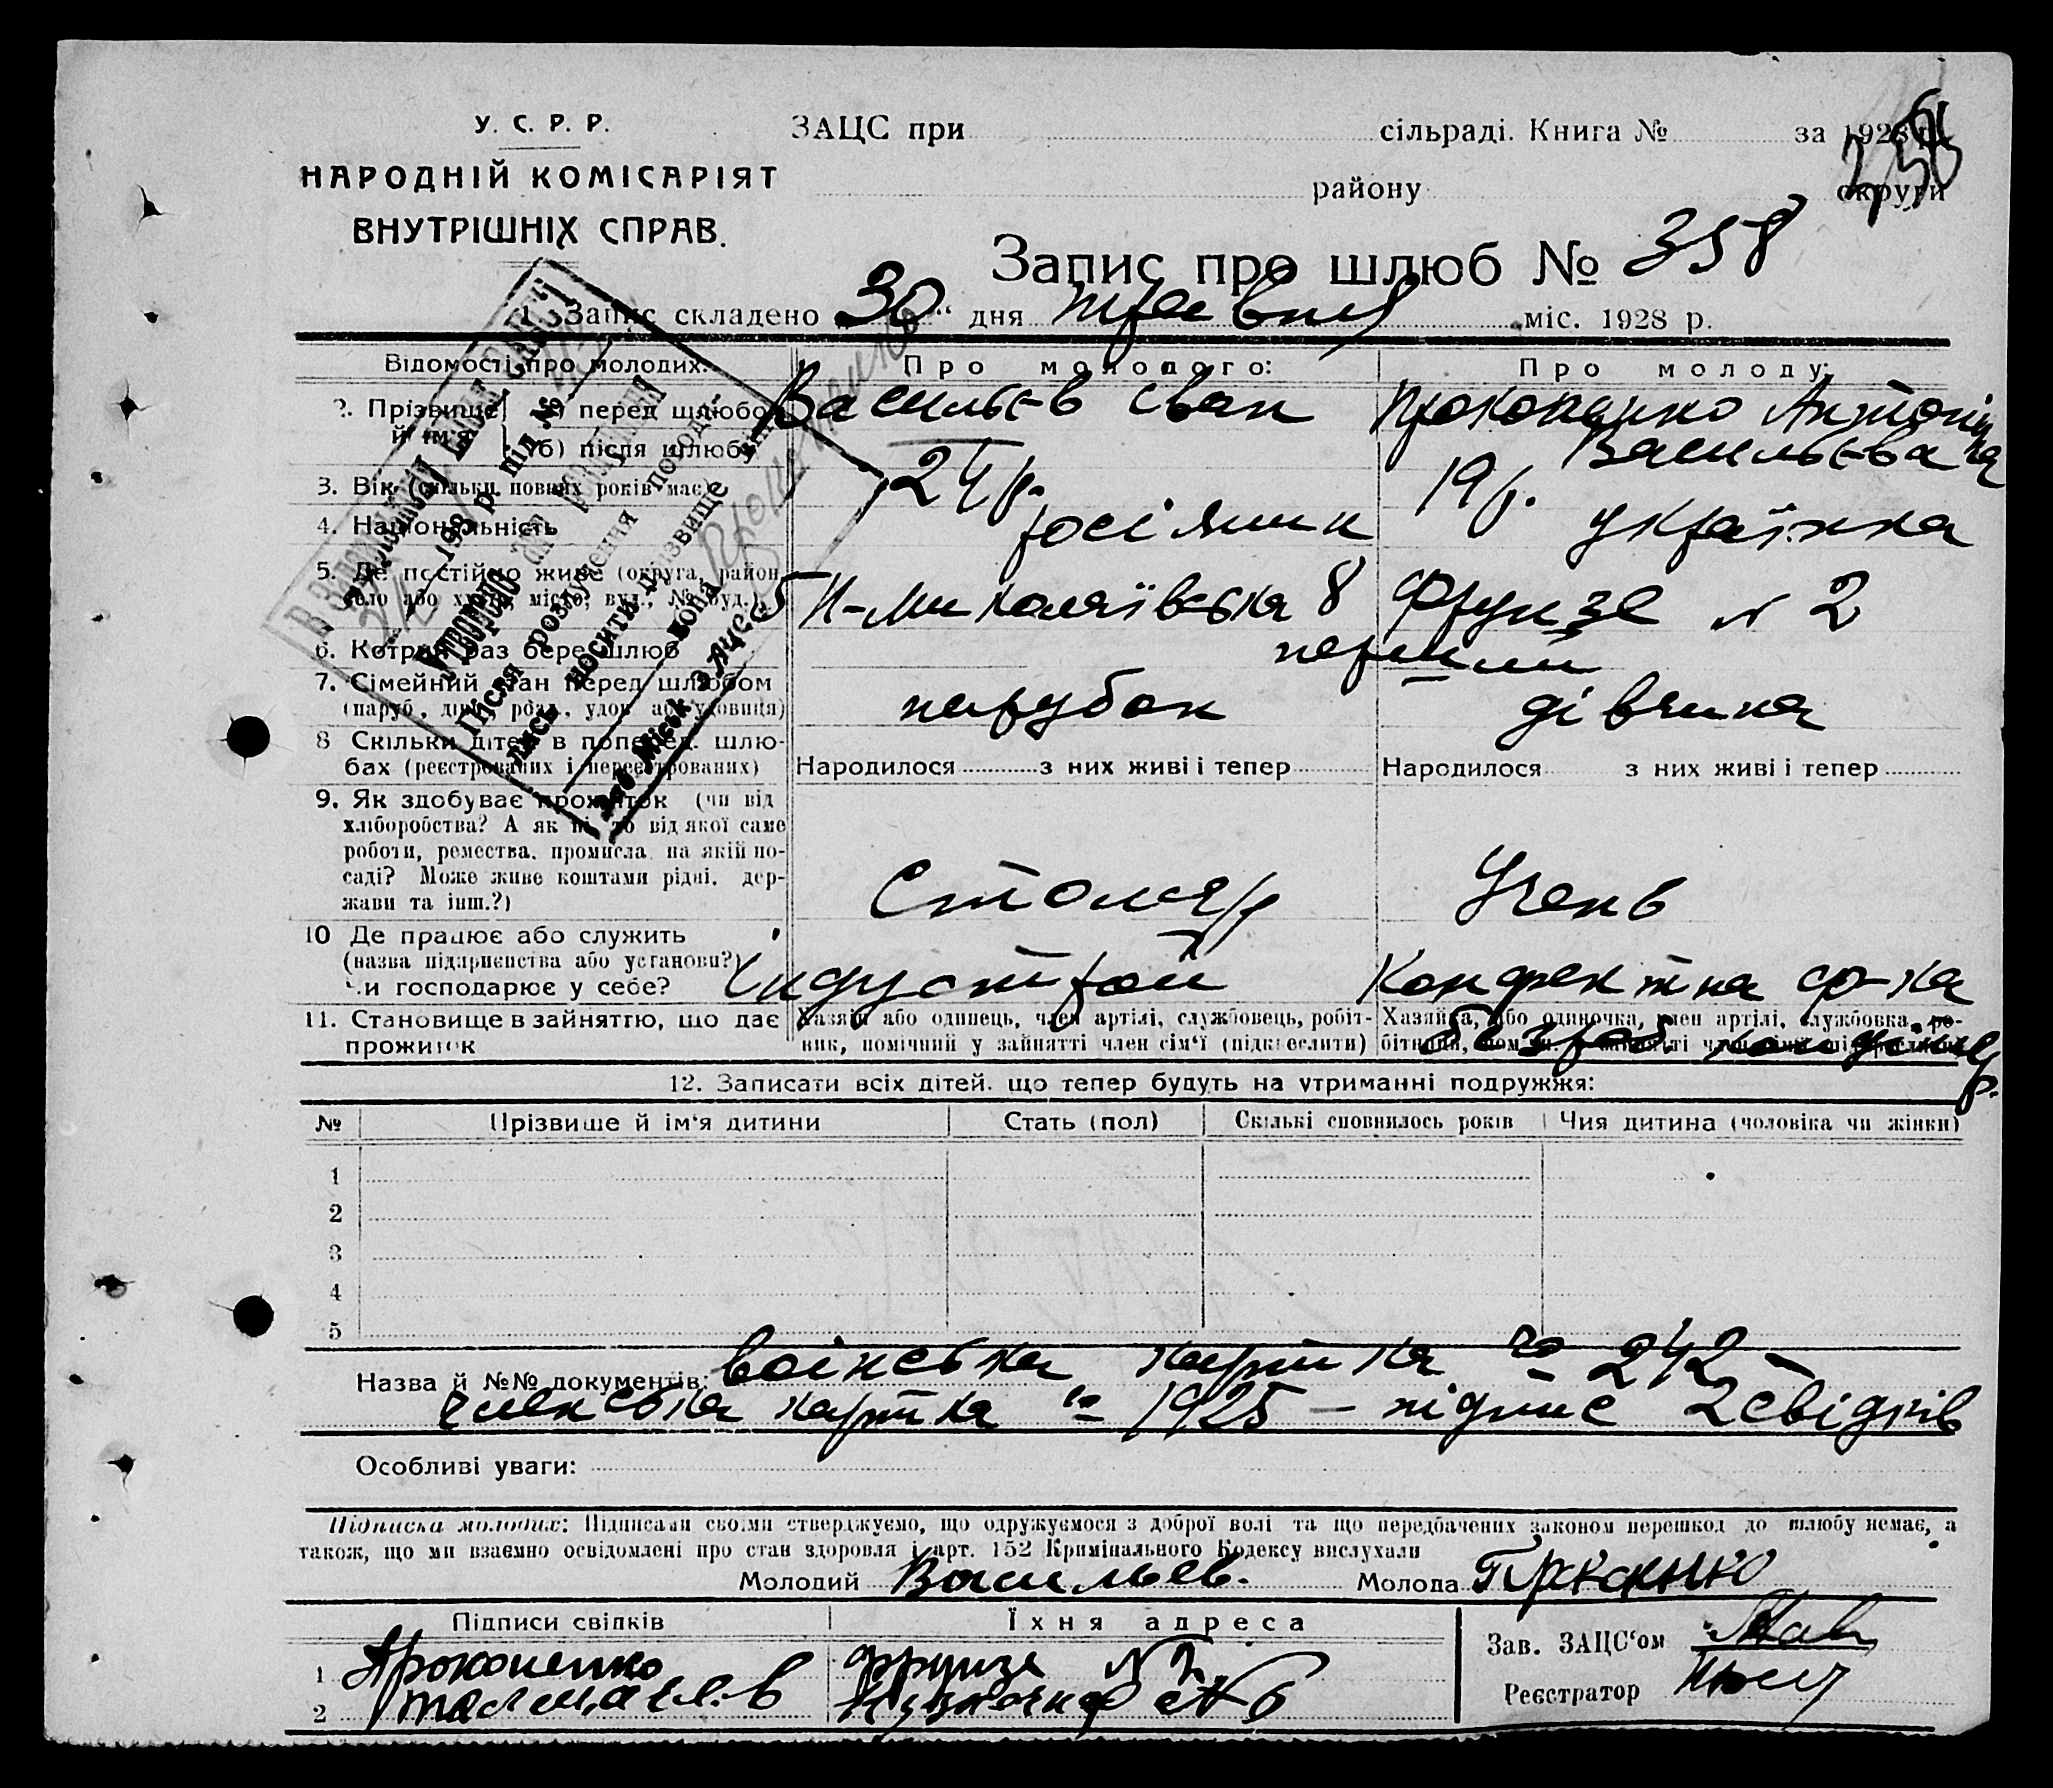 У. С. Р. Р.
НАРОДНІЙ КОМІСАРІЯТ
ВНУТРІШНІХ СПРАВ.
ЗАЦС при сільраді. Книга № за 1928 р.
району округи
Запис про шлюб № 358
1. Запис складено 30 " дня травня міс. 1928 р.
Відомості про молодих: Про молодого: Про молоду:
2. Прізвище й ім'я а) перед шлюбом Васильєв Іван Прокопенко Антоніна
б) після шлюбу Васильєва
3. Вік (скільки повних років має) 24 р. 19 р.
4. Національність росіянин українка
5. Де постійно живе (округа, район, село або хутір, місто, вул., № буд.) Н-Миколаївська 8 Фрунзе № 2
6. Котрий раз бере шлюб перший
7. Сімейний стан перед шлюбом парубок дівчина
(паруб., дівч., розл., удов. або удовиця)
8 Скільки дітей в поперед. шлюбах (реєстрованих і нереєстрованих) Народилося з них живі і тепер Народилося з них живі і тепер
9. Як здобуває прожиток (чи від
хліборобства? А як ні, то від якої саме
роботи, ремества, промисла, на якій по-
саді? Може живе коштами рідні, дер-
жави та інш.?)
Столяр Учень
10 Де працює або служить
(назва підприємства або установи?)
чи господарює у себе?
Індустрой Конфектна ф-ка
11. Становище в зайнятю, що дає прожиток
Хазяїн або одинець, член артілі, службовець, робіт-
ник, помічний у зайнятті член сім'ї (підкреслити)
Хазяйка, або одиночка, член артілі, службовка, ро-
12. Записати всіх дітей, що тепер будуть на утриманні подружжя:
№ Прізвище й ім'я дитини Стать (пол) Скількі сповнилось років Чия дитина (чоловіка чи жінки)
1
2
3
4
5
Назва й №№ документів: воїнська картка № 242 –
членська картка № 1925 – підпис 2 свідків
Особливі уваги:
Підписка молодих: Підписами своїми стверджуємо, що одружуємося з доброї волі та що передбачених законом перешкод до шлюбу немає, а
також, що ми взаємно освідомлені про стан здоровля і арт. 152 Кримінального Кодексу вислухали
Молодий Васильев. Молода
Підписи свідків Їхня адреса Зав. ЗАЦС'ом
1 Прокопенко Фрунзе № 2
2 Реєстратор
Утворено
Після розлучення погоди-
лись носити прізвище
він
вона Прокопенко
Зав. Міськ ЗАЦС